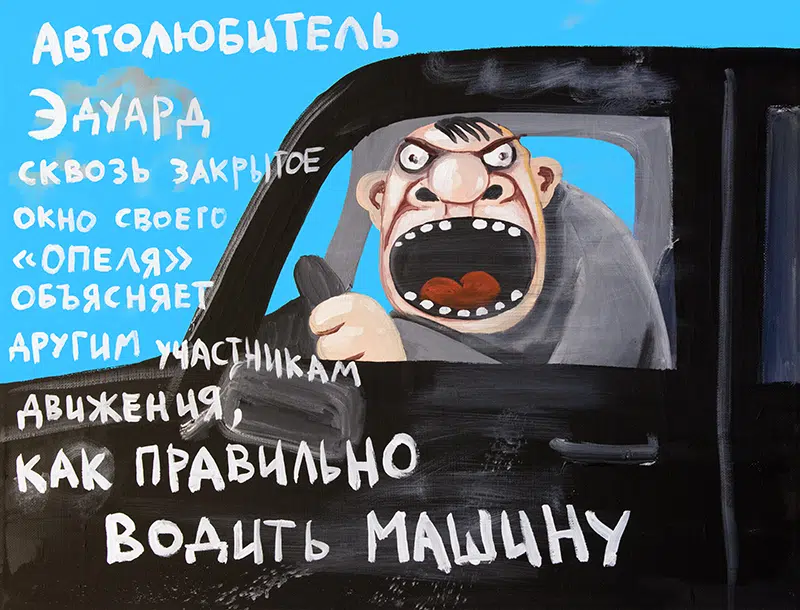 Автолюбитель
Эдуард
сквозь закрытое
окно своего
«Опеля»
объясняет
другим участникам
движения,
как правильно
водить машину